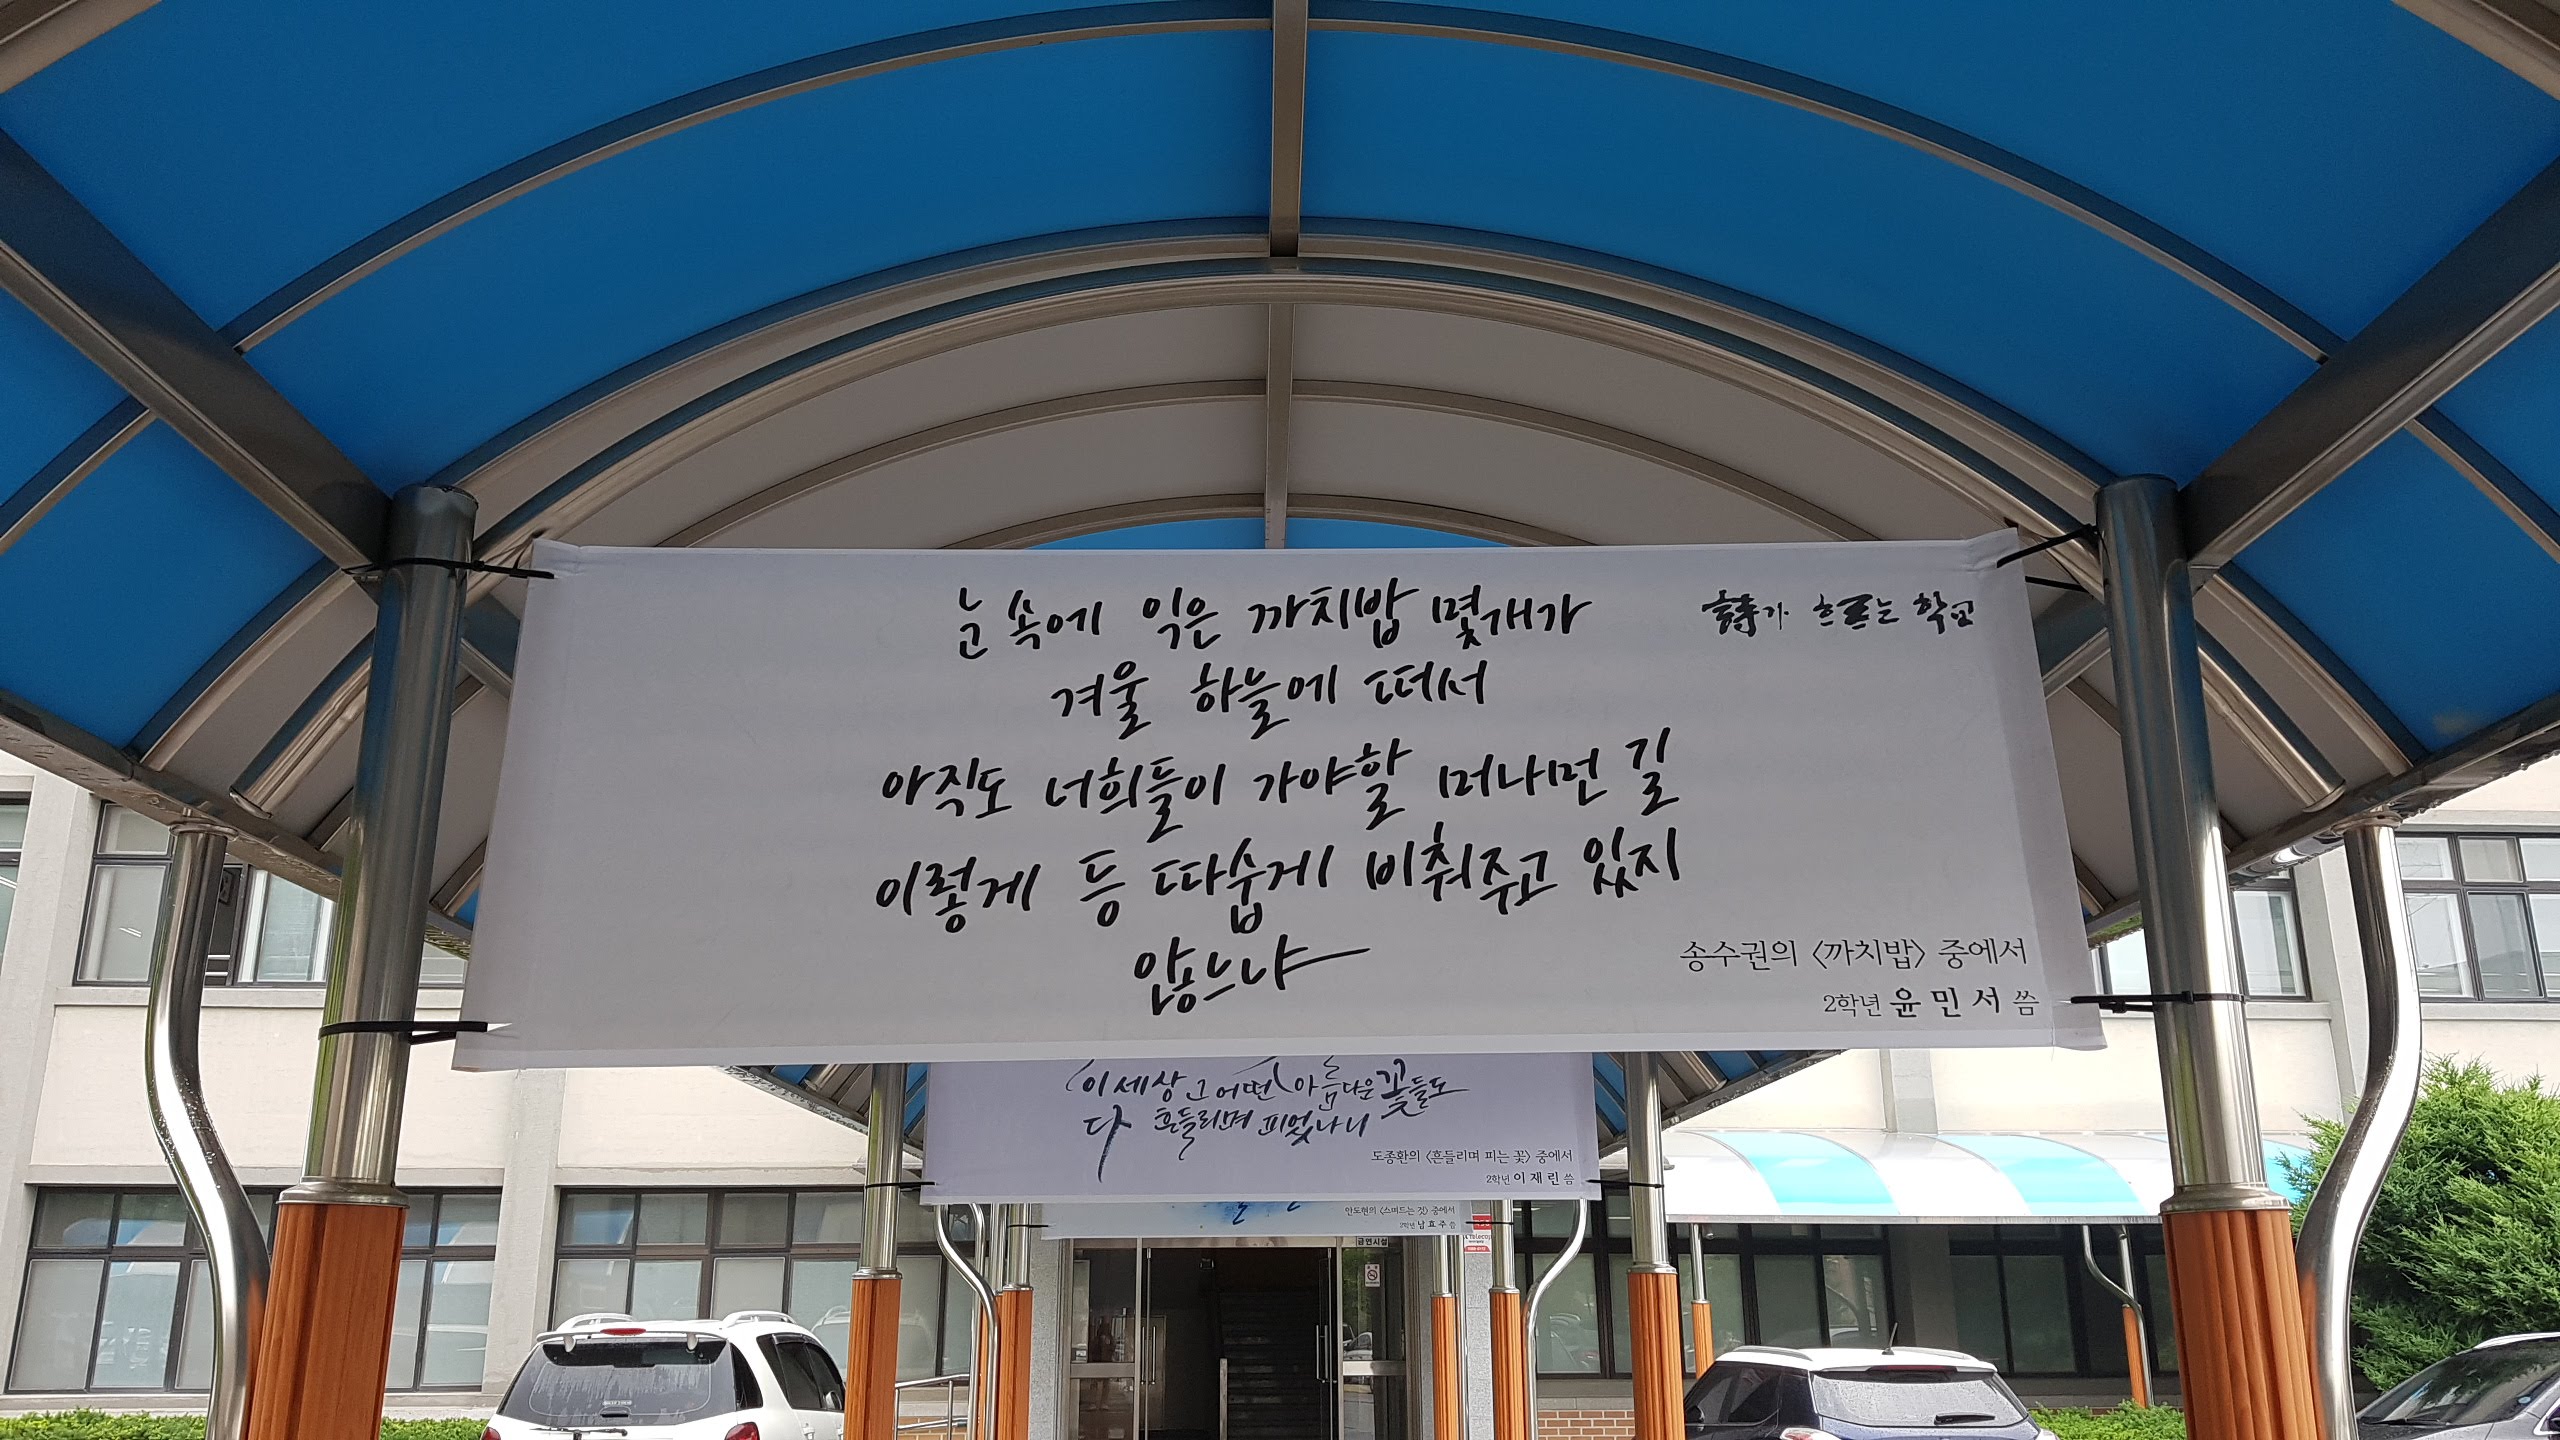 詩가 흐르는 학교
눈 속에 익은 까치밥 몇개가
겨울 하늘에 떠서
아직도 너희들이 가야할 머나먼 길
이렇게 등 따숩게 비춰주고 있지
않느냐
송수권의 <까치밥> 중에서
2학년 윤민서 씀
이 세상 그 어떤 아름다운 꽃들도
다 흔들리며 피었나니
도종환의 <흔들리며 피는 꽃> 중에서
2학년 이재린 씀
안도현의 <스며드는 것> 중에서
2학년 남효주 씀
금연시설